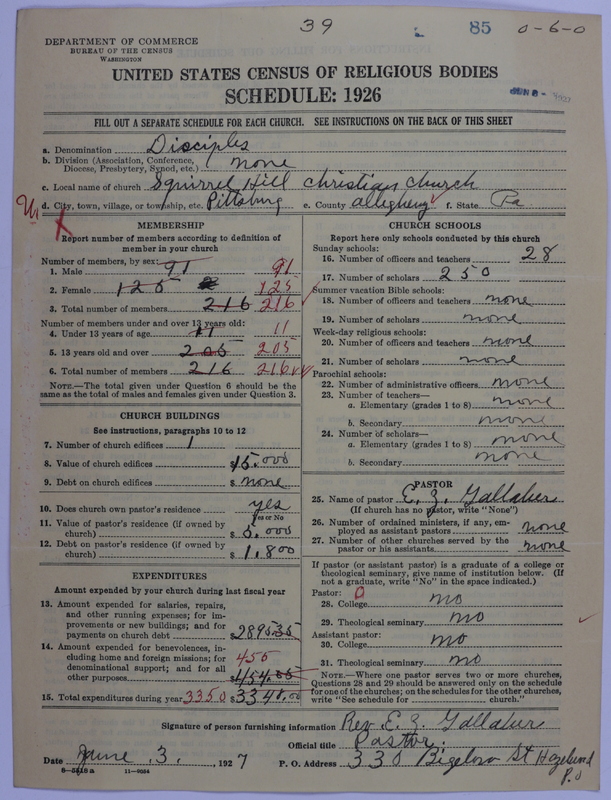 39
85
0-6-0
DEPARTMENT OF COMMERCE
BUREAU OF THE CENSUS
WASHINGTON
UNITED STATES CENSUS OF RELIGIOUS BODIES
SCHEDULE: 1926
FILL OUT A SEPARATE SCHEDULE FOR EACH CHURCH. SEE INSTRUCTIONS ON THE BACK OF THIS SHEET
a. Denomination Disciples
b. Division (Association, Conference, Diocese, Presbytery, Synod, etc.) none
c. Local name of church Squirrel Hill Christian Church
d. City, town, village, or township, etc. Pittsburg e. County Allegheny f. State Pa
MEMBERSHIP
Report number of members according to definition of member in your church
Number of members, by sex:
1. Male 91 91
2. Female 125 125
3. Total number of members 216 216
Number of members under and over 13 years old:
4. Under 13 years of age 11 11
5. 13 years old and over 205 205
6. Total number of members 216 216
NOTE.—The total given under Question 6 should be the same as the total of males and females given under Question 3.
CHURCH BUILDINGS
See instructions, paragraphs 10 to 12
7. Number of church edifices 1
8. Value of church edifices $15.000
9. Debt on church edifices $ none
10. Does church own pastor's residence yes
Yes or No
11. Value of pastor's residence (if owned by church) $5.000
12. Debt on pastor's residence (if owned by church) $1.800
EXPENDITURES
Amount expended by your church during last fiscal year
13. Amount expended for salaries, repairs, and other running expenses; for improvements or new buildings; and for payments on church debt $2895.35
14. Amount expended for benevolences, including home and foreign missions; for denominational support; and for all other purposes 455 $454.65
15. Total expenditures during year 3350 $3348.00
CHURCH SCHOOLS
Report here only schools conducted by this church
Sunday schools:
16. Number of officers and teachers 28
17. Number of scholars 250
Summer vacation Bible schools:
18. Number of officers and teachers none
19. Number of scholars none
Week-day religious schools:
20. Number of officers and teachers none
21. Number of scholars none
Parochial schools:
22. Number of administrative officers none
23. Number of teachers—
a. Elementary (grades 1 to 8) none
b. Secondary none
24. Number of scholars—
a. Elementary (grades 1 to 8) none
b. Secondary none
PASTOR
25. Name of pastor E. Z. Gallaher
(If church has no pastor, write "None")
26. Number of ordained ministers, if any, employed as assistant pastors none
27. Number of other churches served by the pastor or his assistants none
If pastor (or assistant pastor) is a graduate of a college or theological seminary, give name of institution below. (If not a graduate, write "No" in the space indicated.)
Pastor: 0
28. College no
29. Theological seminary no
Assistant pastor:
30. College no
31. Theological seminary no
NOTE.—Where one pastor serves two or more churches, Questions 28 and 29 should be answered only on the schedule for one of the churches; on the schedules for the other churches, write "See schedule for church."
Signature of person furnishing information Rev. E. Z. Gallaher
Official title Pastor
Date June 3, 1927 P. O. Address 330 Bigelow St Hazelwood P.O
11—9034